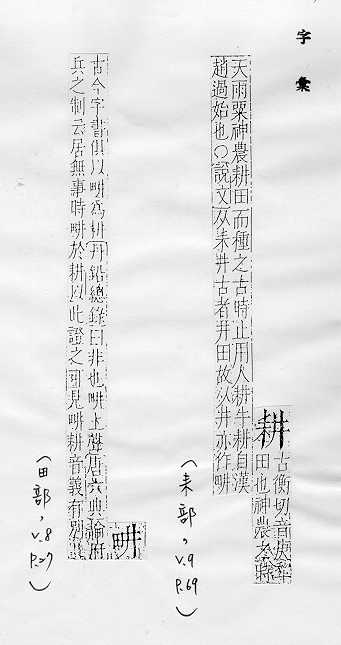 字彙
耕
古衡切音庚犂
田也神農之時
天雨粟神農耕田而種之古時止用人耕牛耕自漢
趙過始也○說文从耒井古者井田故以井亦作畊
(耒部,v.9 P.69)
畊
古今字書俱以畊為耕丹鉛總錄曰非也畊上聲唐六典論府
兵之制云居無事時畊於耕以此證之可見畊耕音義有別
(田部,v.8 P.27)